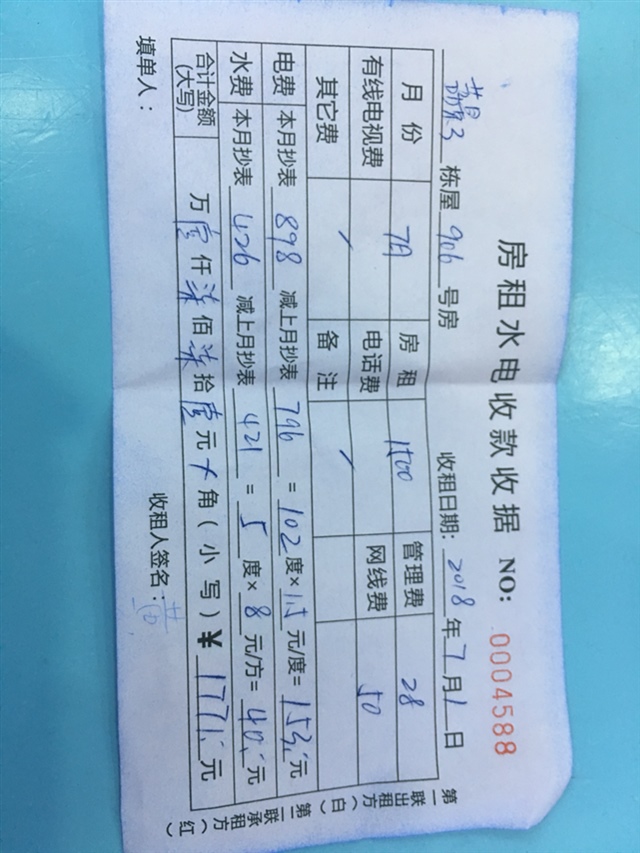 房租水电收款收据 NO: 0004588
栋屋 906 号房 收租日期: 2018 年 7 月 1 日
月份 7月 房租 1500 管理费 28
有线电视费 / 电话费 / 网线费 50
其它费 备注
电费 本月抄表 898 减上月抄表 796 = 102 度× 1.5 元/度= 153 元
水费 本月抄表 426 减上月抄表 421 = 5 度× 8 元/方= 40 元
合计金额(大写) 万 壹 仟 柒 佰 柒 拾 壹 元 角(小写)¥ 1771 元
填单人: 收租人签名: 黄
第一联出租方(白)
第二联承租方(红)